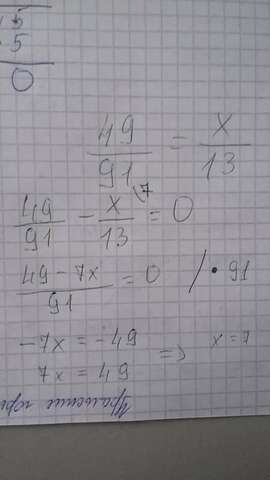 5
5
0
49/91 = x/13
49/91 - x/13 = 0
7
(49 - 7x)/91 = 0 / · 91
-7x = -49 => x = 7
7x = 49